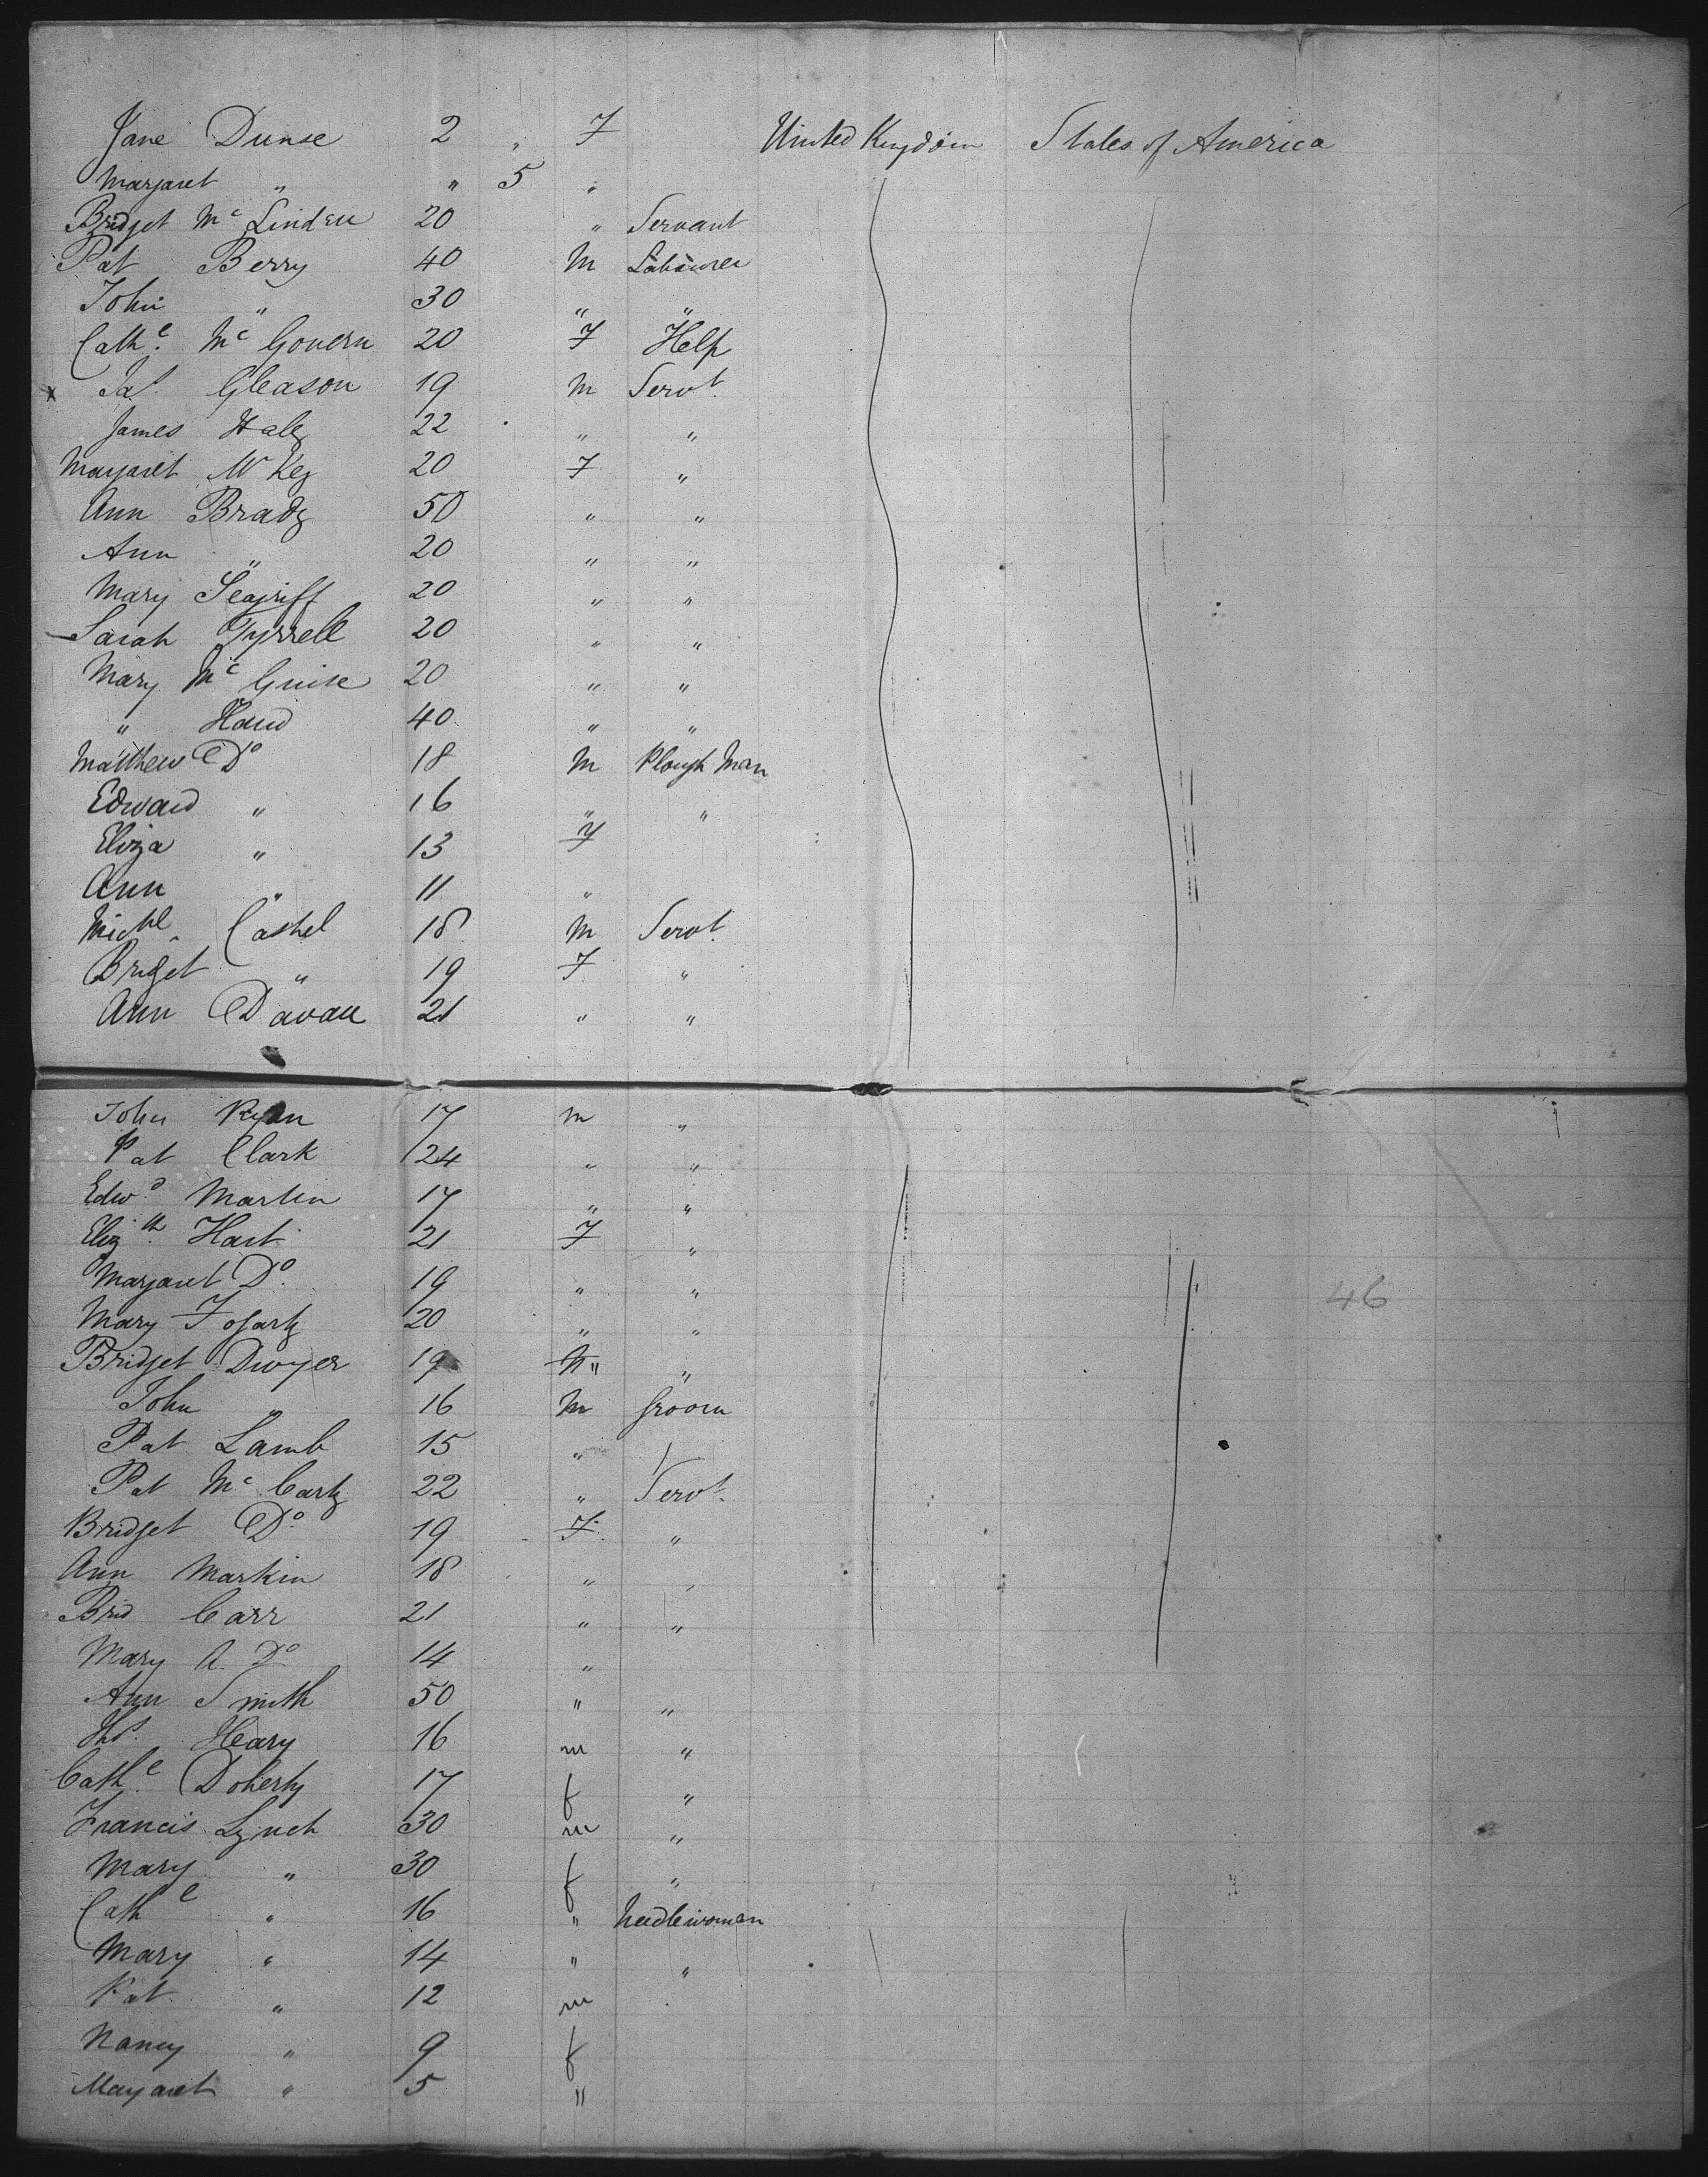 Jane Dunse 2 " F United Kingdom States of America
Margaret " " 5 "
Bridget Mc Linden 20 " Servant
Pat Berry 40 M Labourer
John " 30 " "
Cathe. Mc Govern 20 F Help
x Jas. Gleason 19 M Servt.
James Haley 22 " "
Margaret McKey 20 F "
Ann Brady 50 " "
Ann " 20 " "
Mary Seagriff 20 " "
Sarah Tyrrell 20 " "
Mary Mc Guire 20 " "
" Hand 40 " "
Matthew Do 18 M Plough Man
Edward " 16 " "
Eliza " 13 F
Ann " 11 "
Michl. Cashel 18 M Servt.
Bridget " 19 F "
Ann Davan 21 " "
John Ryan 17 m "
Pat Clark 24 " "
Edwd. Martin 17 " "
Elizth. Hart 21 F "
Margaret Do. 19 " " 46
Mary Fogarty 20 " "
Bridget Dwyer 19 " "
John " 16 M Groom
Pat Lamb 15 "
Pat Mc Carty 22 " Servt.
Bridget Do. 19 F "
Ann Markin 18 " "
Brid Carr 21 " "
Mary A. Do 14 "
Ann Smith 50 " "
Ths. Heary 16 m "
Cathe. Doherty 17 f "
Francis Lynch 30 m "
Mary " 30 f "
Cathe " 16 " Needlewoman
Mary " 14 " "
Pat. " 12 m
Nancy " 9 f
Margaret " 5 "